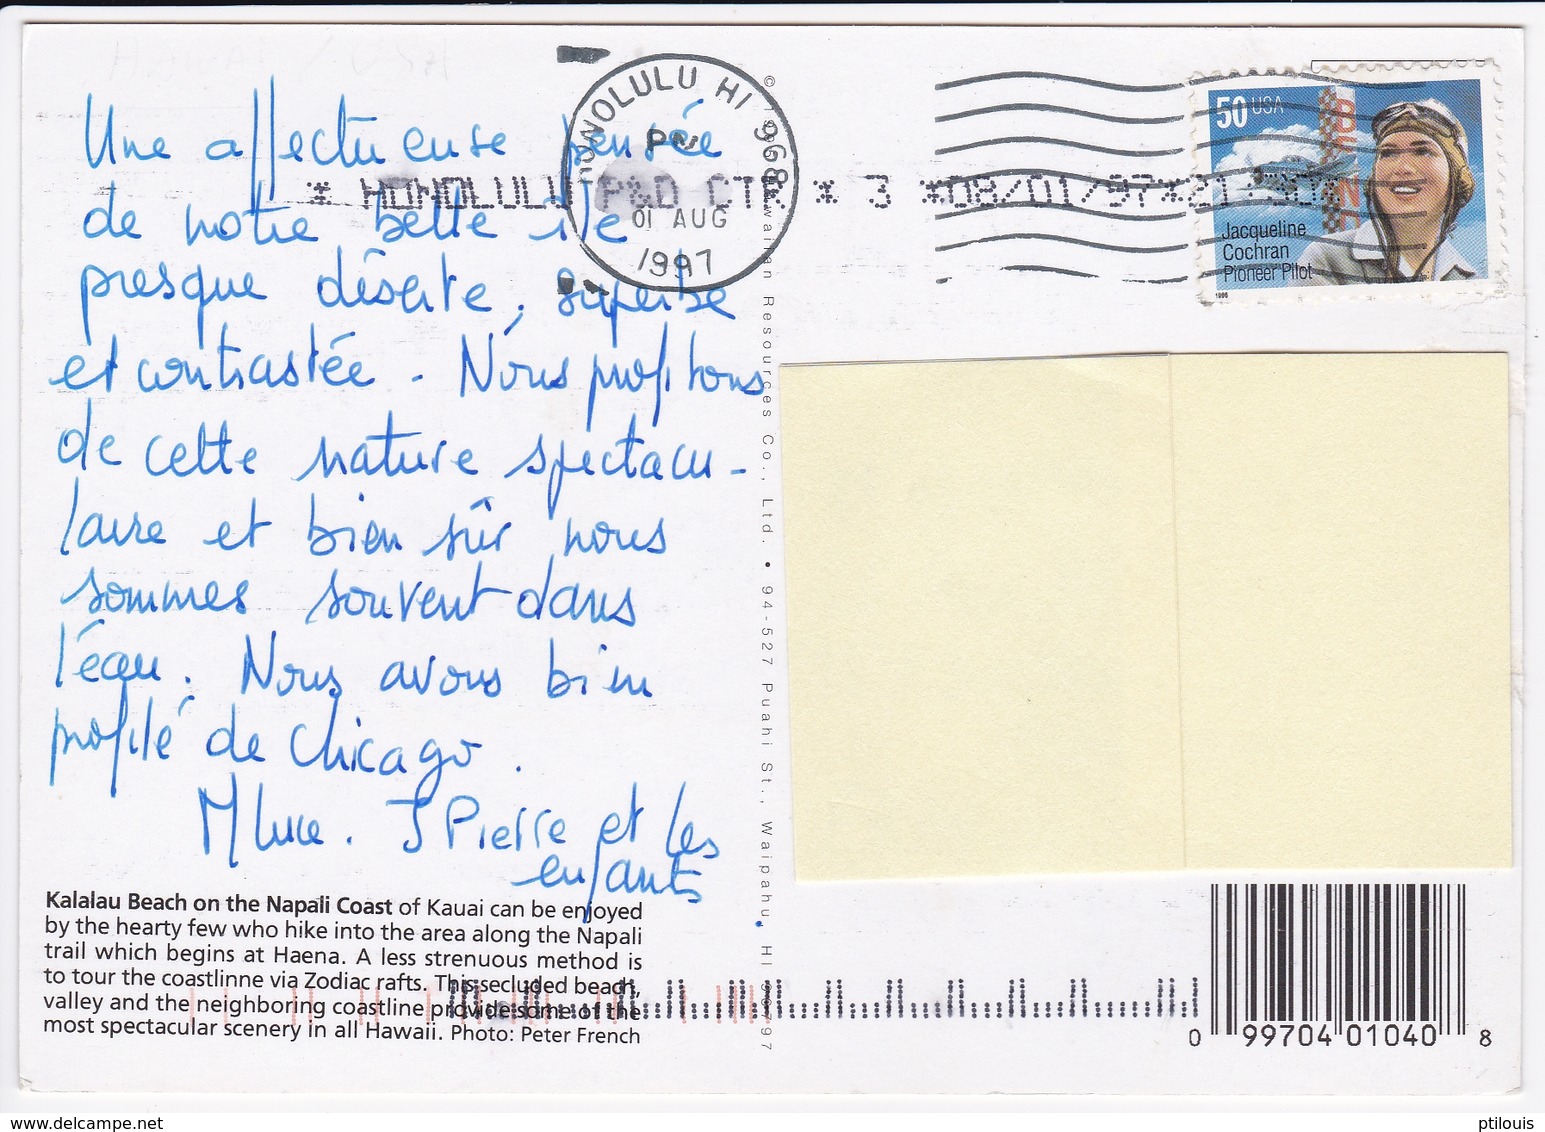 Une affectueuse pensée
de notre belle île
presque déserte, superbe
et contrastée. Nous profitons
de cette nature spectacu-
laire et bien sûr nous
sommes souvent dans
l'éau. Nous avons bien
profité de Chicago.
MLuce. JPierre et les
enfants
Kalalau Beach on the Napali Coast of Kauai can be enjoyed
by the hearty few who hike into the area along the Napali
trail which begins at Haena. A less strenuous method is
to tour the coastlinne via Zodiac rafts. This secluded beach,
valley and the neighboring coastline provide some of the
most spectacular scenery in all Hawaii. Photo: Peter French
HONOLULU HI 968
PM
01 AUG
1997
* HONOLULU P&D CTR * 3 *08/01/97*21:30*
50 USA
BENDIX
Jacqueline
Cochran
Pioneer Pilot
1996
Hawaiian Resources Co., Ltd. • 94-527 Puahi St., Waipahu, HI 96797
0 99704 01040 8
ptilouis